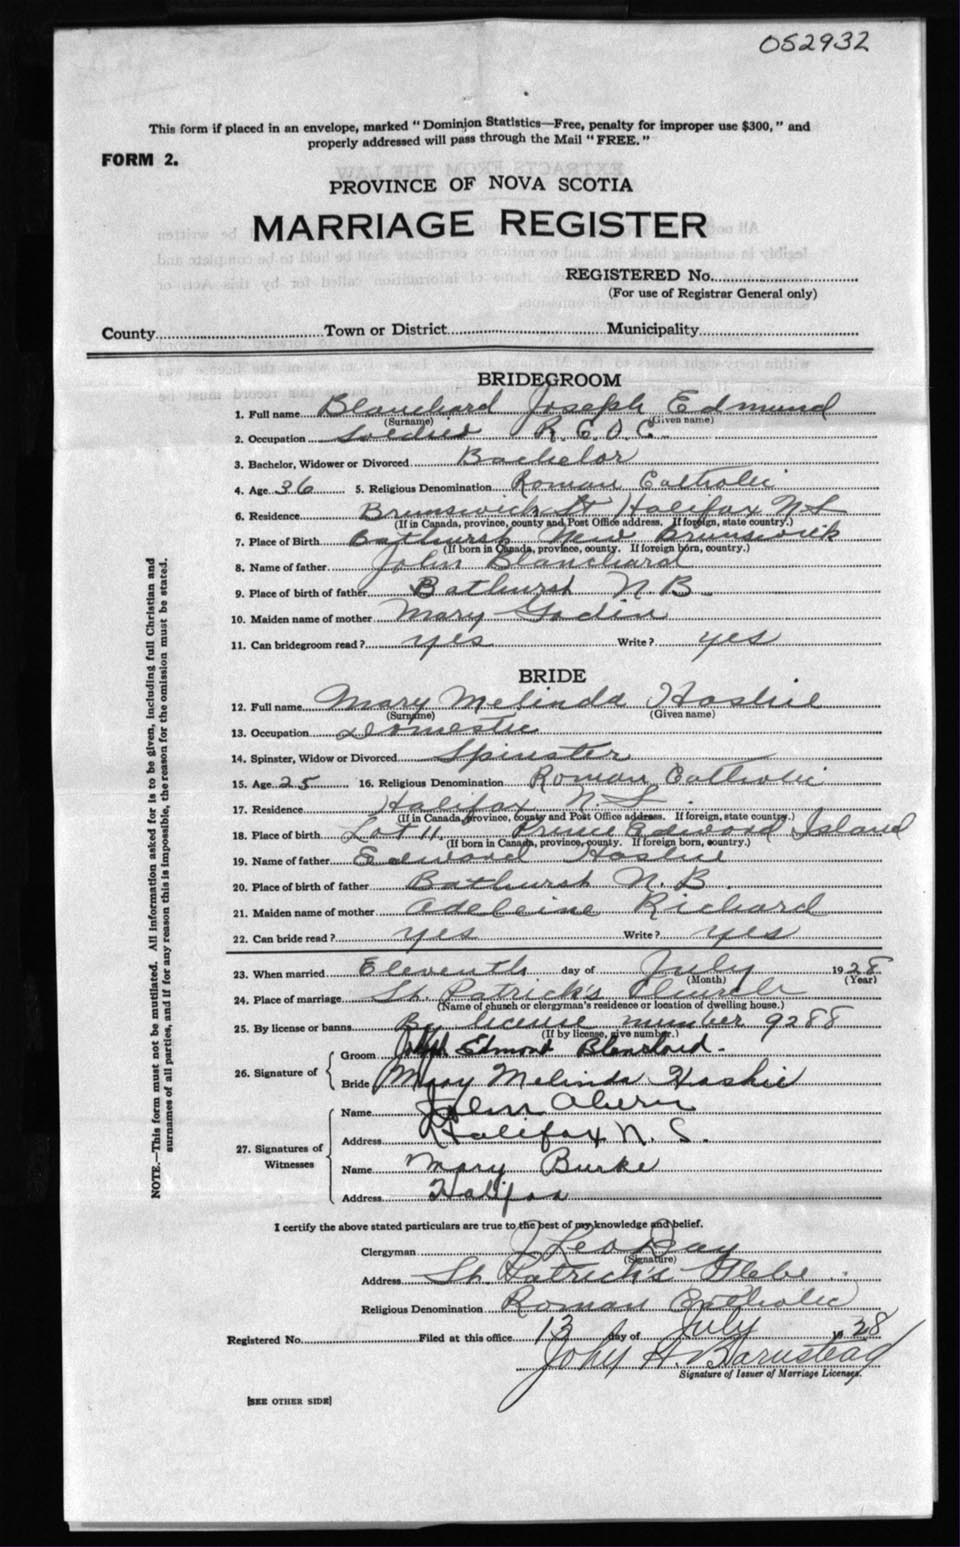 052932
This form if placed in an envelope, marked "Dominion Statistics—Free, penalty for improper use $300," and
properly addressed will pass through the Mail "FREE."
FORM 2.
PROVINCE OF NOVA SCOTIA
MARRIAGE REGISTER
REGISTERED No.
(For use of Registrar General only)
County Town or District Municipality
BRIDEGROOM
1. Full name Blanchard Joseph Edmund
(Surname) (Given name)
2. Occupation Soldier R.C.O.C.
3. Bachelor, Widower or Divorced Bachelor
4. Age 36 5. Religious Denomination Roman Catholic
6. Residence Brunswick St Halifax N S
(If in Canada, province, county and Post Office address. If foreign, state country.)
7. Place of Birth Bathurst New Brunswick
(If born in Canada, province, county. If foreign born, country.)
8. Name of father John Blanchard
9. Place of birth of father Bathurst N.B.
10. Maiden name of mother Mary Godin
11. Can bridegroom read? yes Write? yes
BRIDE
12. Full name Mary Melinda Hashie
(Surname) (Given name)
13. Occupation Domestic
14. Spinster, Widow or Divorced Spinster
15. Age 25 16. Religious Denomination Roman Catholic
17. Residence Halifax N.S.
(If in Canada, province, county and Post Office address. If foreign, state country.)
18. Place of birth Lot 11, Prince Edward Island
(If born in Canada, province, county. If foreign born, country.)
19. Name of father Edward Hashie
20. Place of birth of father Bathurst N.B.
21. Maiden name of mother Adeleine Richard
22. Can bride read? yes Write? yes
23. When married Eleventh day of July 1928
(Month) (Year)
24. Place of marriage St. Patrick's Church
(Name of church or clergyman's residence or location of dwelling house.)
25. By license or banns By license number 9288
(If by license, give number.)
26. Signature of Groom Joseph Edmond Blanchard.
Bride Mary Melinda Hashie
27. Signatures of Witnesses Name John Ahern
Address Halifax N.S.
Name Mary Burke
Address Halifax
I certify the above stated particulars are true to the best of my knowledge and belief.
Clergyman J. Leo Day
(Signature)
Address St. Patrick's Glebe.
Religious Denomination Roman Catholic
Registered No. Filed at this office 13 day of July 1928
John H. Barnstead
Signature of Issuer of Marriage Licenses.
[SEE OTHER SIDE]
NOTE.—This form must not be mutilated. All information asked for is to be given, including full Christian and
surnames of all parties, and if for any reason this is impossible, the reason for the omission must be stated.